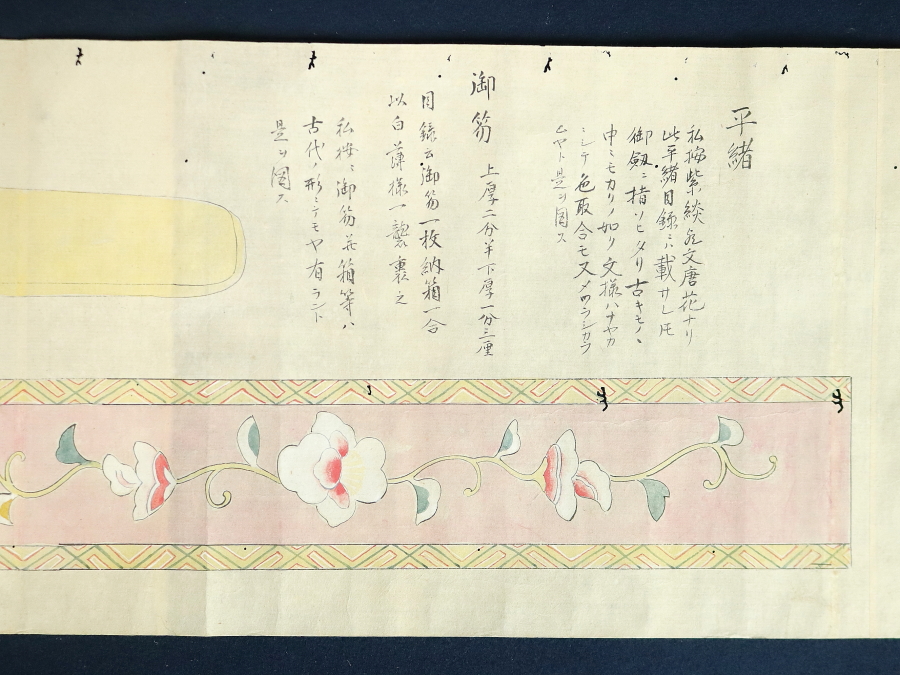 平緒
私按紫緂忍文唐花ナリ
此平緒目録ニハ載サレ𪜈
御劔ニ揩ソヒタリ古キモノヽ
中ニモカリノ如リ文様ハナヤカ
ニシテ色取合モスメツラシカラ
ムヤト是ヲ圖ス
御笏 上厚二分半下厚一分三厘
目録云御笏一枚納箱一合
以白薄様一襲裹之
私按ニ御笏并箱等ハ
古代ノ形ニテモヤ有ラント
是ヲ圖ス